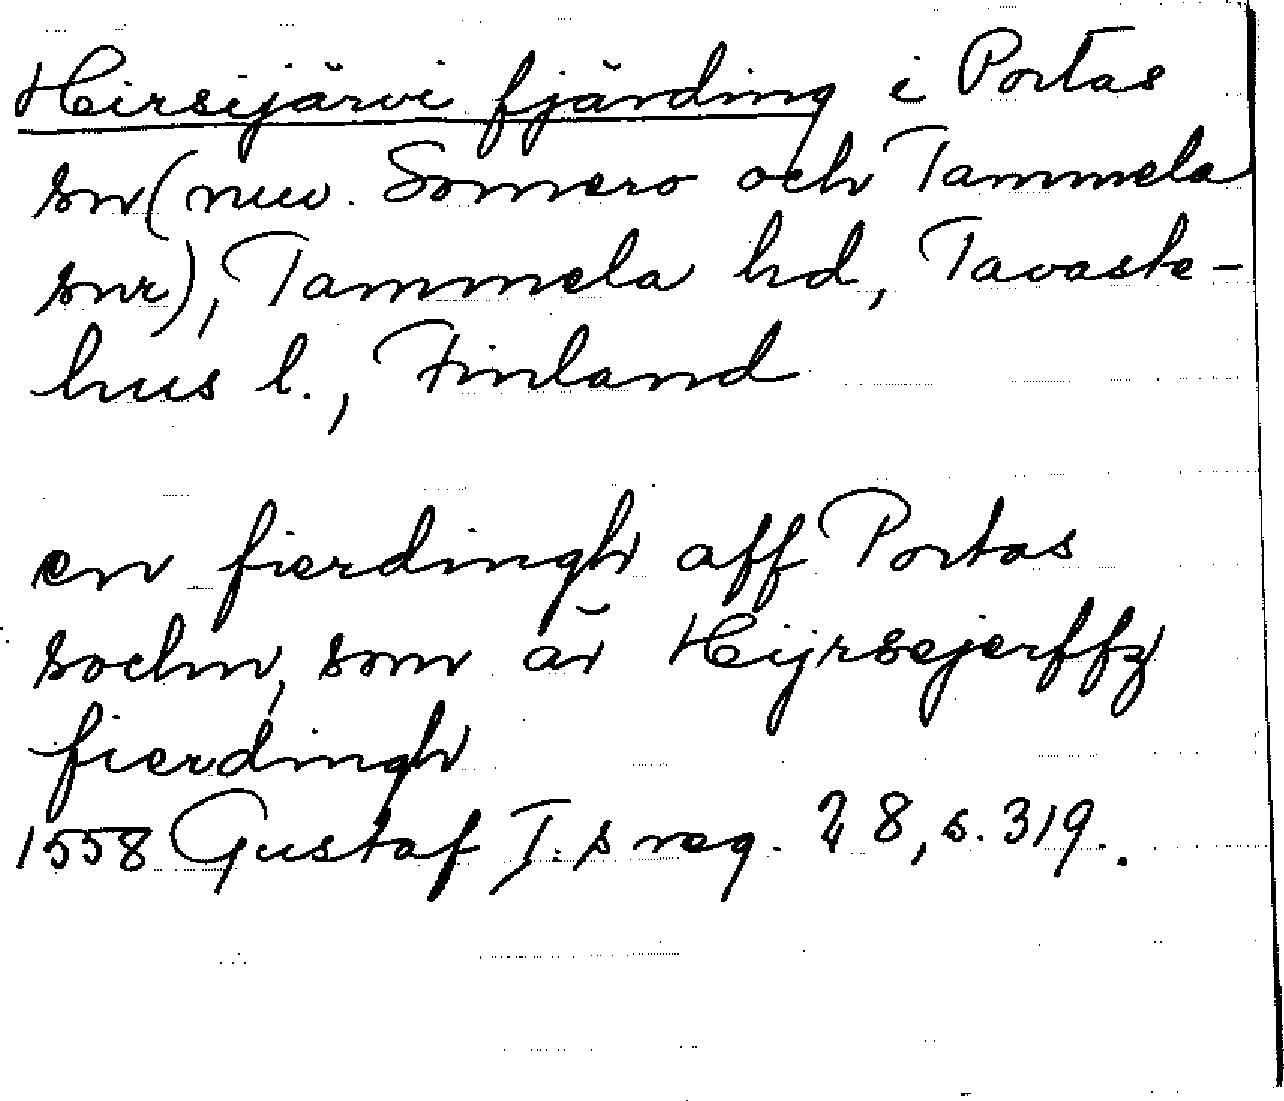 Hirsijärvi fjärding i Portas
sn (nuv. Somero och Tammela
snr), Tammela hd, Tavaste-
hus l., Finland
en fierdingh aff Portas
sochn, som är Hijrsejerffz
fierdingh
1558 Gustaf I:s reg. 28, s. 319.